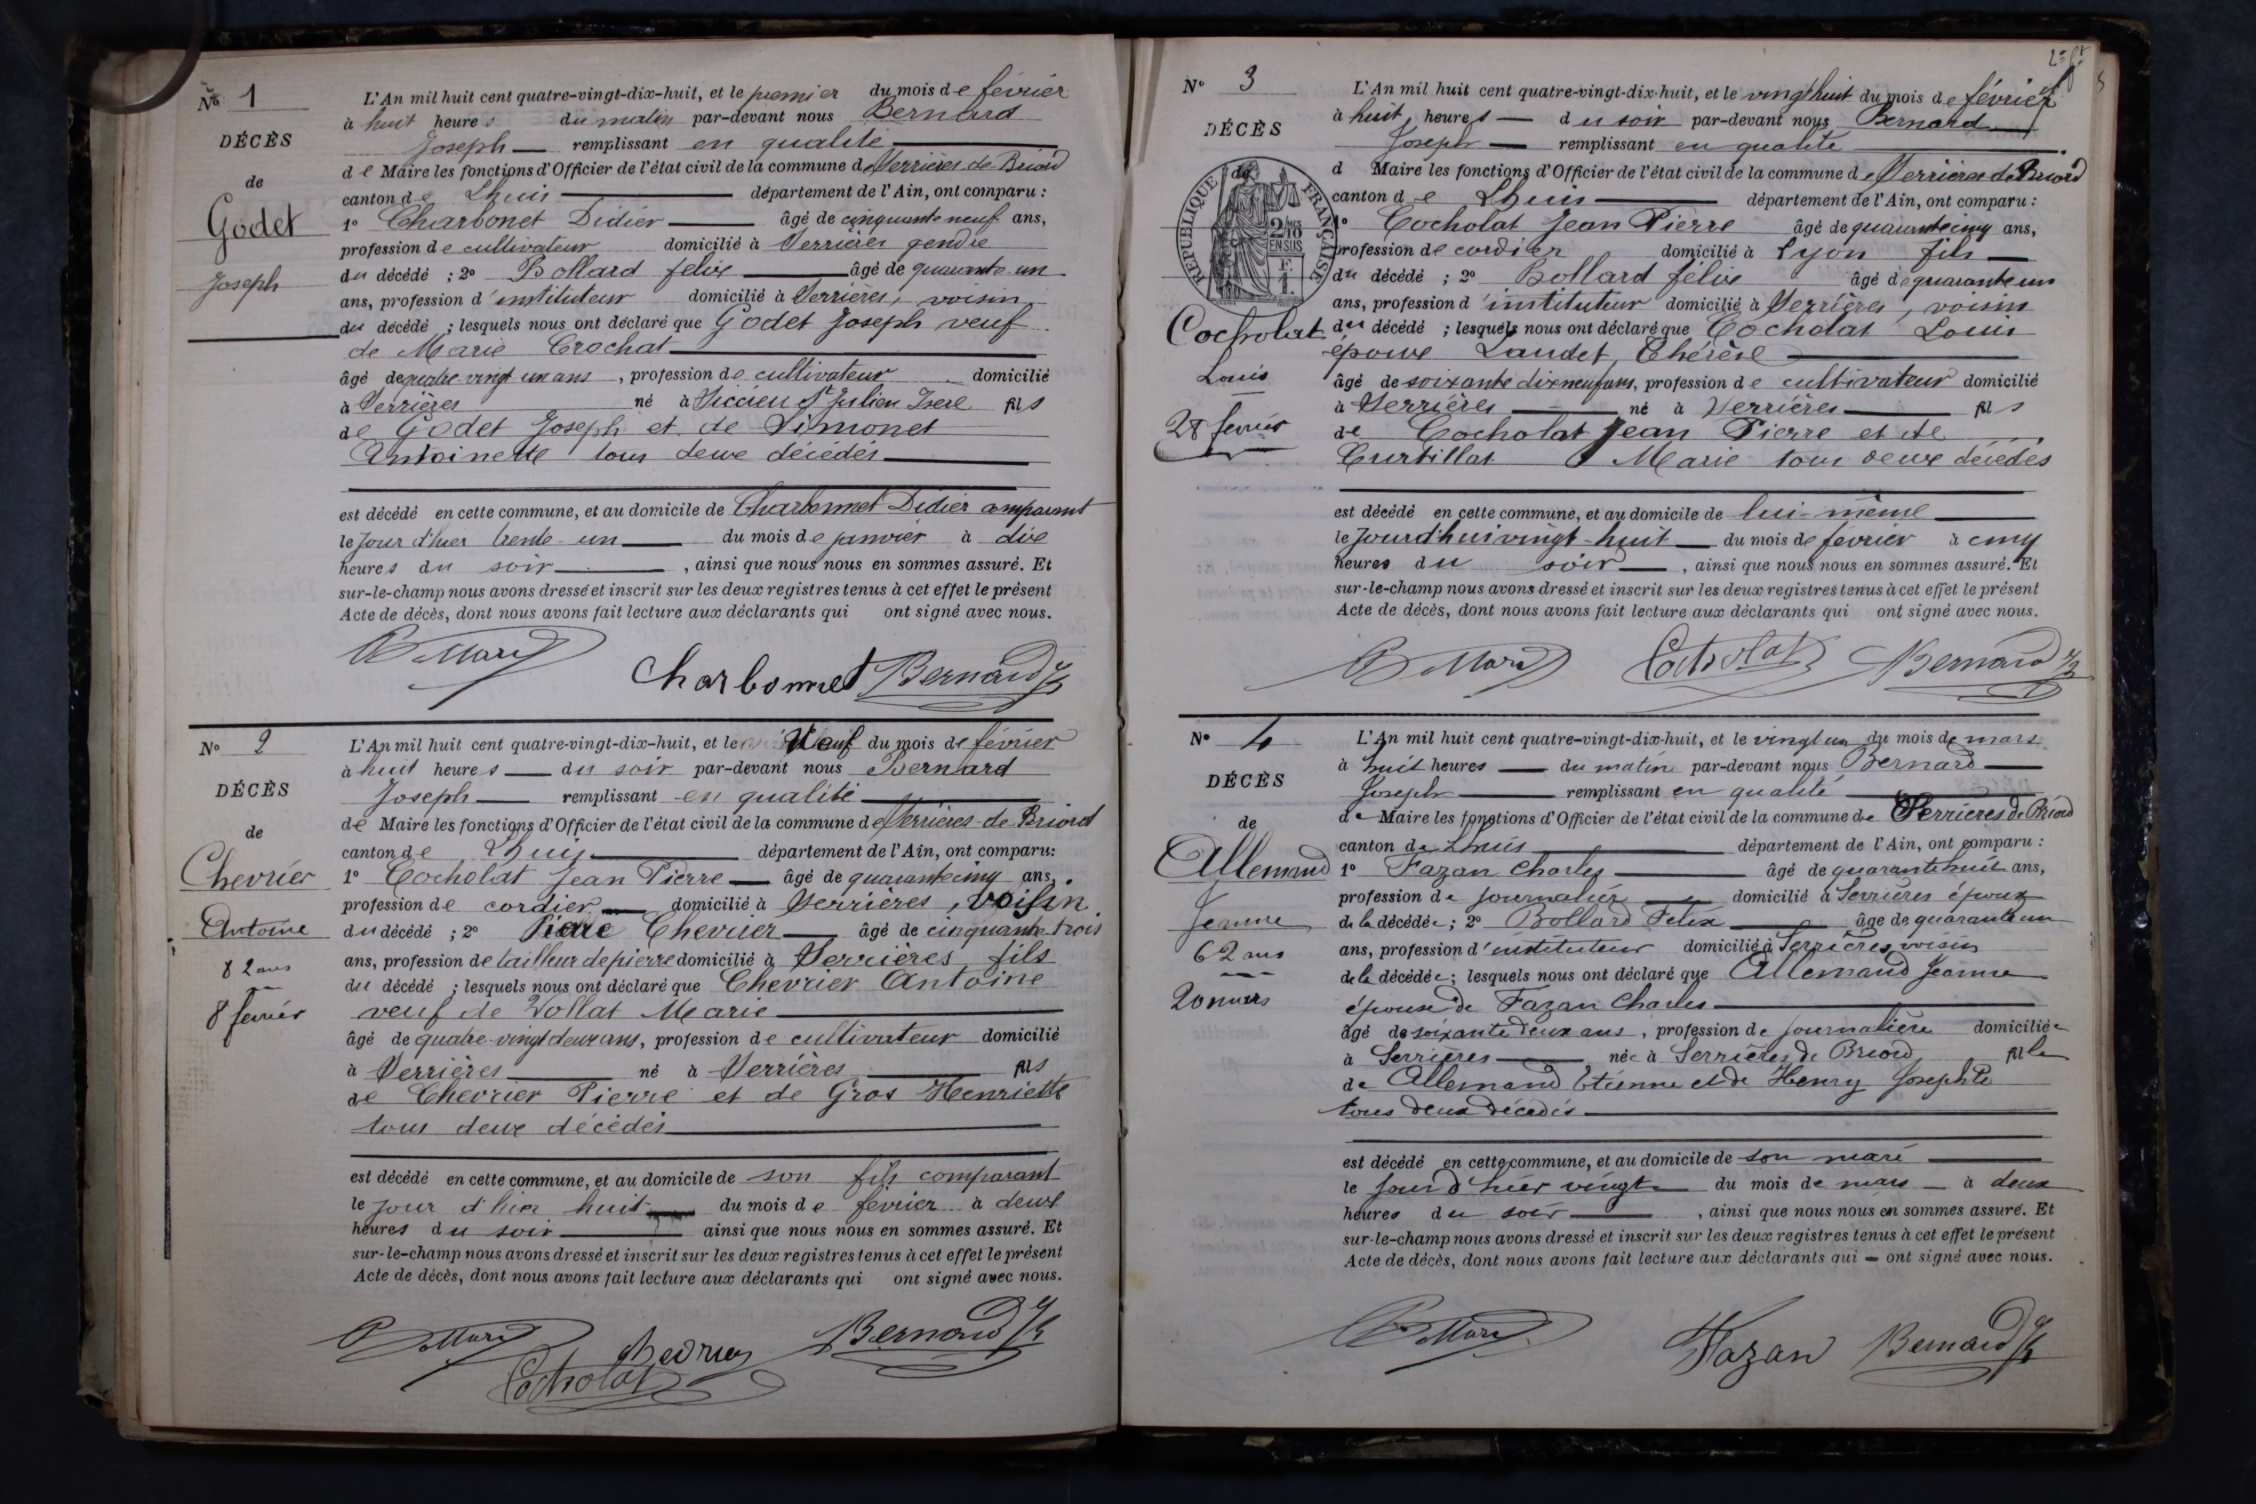 N° 1
DÉCÈS
de
Godet
Joseph
L'An mil huit cent quatre-vingt-dix-huit, et le premier du mois de février
à huit heures du matin par-devant nous Bernard
Joseph remplissant en qualité
de Maire les fonctions d'Officier de l'état civil de la commune de Serrières de Briord
canton de Lhuis département de l'Ain, ont comparu :
1° Charbonet Didier âgé de cinquante neuf ans,
profession de cultivateur domicilié à Serrières gendre
du décédé ; 2° Bollard félix âgé de quarante un
ans, profession d'instituteur domicilié à Serrières, voisin
du décédé ; lesquels nous ont déclaré que Godet Joseph veuf
de Marie Crochat
âgé de quatre vingt un ans, profession de cultivateur domicilié
à Serrières né à Siccieu St Julien Isère fils
de Godet Joseph et de Simonet
Antoinette tous deux décédés
est décédé en cette commune, et au domicile de Charbonnet Didier comparant
le jour d'hier trente un du mois de janvier à dix
heures du soir, ainsi que nous nous en sommes assuré. Et
sur-le-champ nous avons dressé et inscrit sur les deux registres tenus à cet effet le présent
Acte de décès, dont nous avons fait lecture aux déclarants qui ont signé avec nous.
Charbonnet Bernard
N° 2
DÉCÈS
de
Chevrier
Antoine
82 ans
8 février
L'An mil huit cent quatre-vingt-dix-huit, et le Neuf du mois de février
à huit heures du soir par-devant nous Bernard
Joseph remplissant en qualité
de Maire les fonctions d'Officier de l'état civil de la commune de Serrières de Briord
canton de Lhuis département de l'Ain, ont comparu:
1° Cocholat Jean Pierre âgé de quarante cinq ans,
profession de cordier domicilié à Serrières, voisin
du décédé ; 2° Pierre Chevrier âgé de cinquante trois
ans, profession de tailleur de pierre domicilié à Serrières fils
du décédé ; lesquels nous ont déclaré que Chevrier Antoine
veuf de Vollat Marie
âgé de quatre-vingt deux ans, profession de cultivateur domicilié
à Serrières né à Serrières fils
de Chevrier Pierre et de Gros Henriette
tous deux décédés
est décédé en cette commune, et au domicile de son fils comparant
le jour d'hier huit du mois de février à deux
heures du soir ainsi que nous nous en sommes assuré. Et
sur-le-champ nous avons dressé et inscrit sur les deux registres tenus à cet effet le présent
Acte de décès, dont nous avons fait lecture aux déclarants qui ont signé avec nous.
Chevrier Bernard
Cocholat
N° 3
DÉCÈS
de
RÉPUBLIQUE FRANÇAISE
2/10
EN SUS
Cocholat
Louis
28 février
L'An mil huit cent quatre-vingt-dix-huit, et le vingt huit du mois de février
à huit heures du soir par-devant nous Bernard
Joseph remplissant en qualité
d Maire les fonctions d'Officier de l'état civil de la commune de Serrières de Briord
canton de Lhuis département de l'Ain, ont comparu :
1° Cocholat Jean Pierre âgé de quarante cinq ans,
profession de cordier domicilié à Lyon fils
du décédé ; 2° Bollard félix âgé de quarante un
ans, profession d'instituteur domicilié à Serrières, voisin
du décédé ; lesquels nous ont déclaré que Cocholat Louis
époux Laudet, Thérèse
âgé de soixante dix neuf ans, profession de cultivateur domicilié
à Serrières né à Serrières fils
de Cocholat Jean Pierre et de
Curtillat Marie tous deux décédés
est décédé en cette commune, et au domicile de lui-même
le jourd'hui vingt-huit du mois de février à cinq
heures du soir, ainsi que nous nous en sommes assuré. Et
sur-le-champ nous avons dressé et inscrit sur les deux registres tenus à cet effet le présent
Acte de décès, dont nous avons fait lecture aux déclarants qui ont signé avec nous.
Cocholat Bernard
N° 4
DÉCÈS
de
Allemand
Jeanne
62 ans
20 mars
L'An mil huit cent quatre-vingt-dix-huit, et le vingt un du mois de mars
à huit heures du matin par-devant nous Bernard
Joseph remplissant en qualité
de Maire les fonctions d'Officier de l'état civil de la commune de Serrières de Briord
canton de Lhuis département de l'Ain, ont comparu :
1° Fazan Charles âgé de quarante huit ans,
profession de journalier domicilié à Serrières époux
de la décédée ; 2° Bollard Félix âgé de quarante un
ans, profession d'instituteur domicilié à Serrières, voisin
de la décédée ; lesquels nous ont déclaré que Allemand Jeanne
épouse de Fazan Charles
âgé de soixante deux ans, profession de journalière domiciliée
à Serrières née à Serrières de Briord fille
de Allemand Etienne et de Henry Josephte
tous deux décédés
est décédé en cette commune, et au domicile de son mari
le jour d'hier vingt du mois de mars à deux
heures du soir, ainsi que nous nous en sommes assuré. Et
sur-le-champ nous avons dressé et inscrit sur les deux registres tenus à cet effet le présent
Acte de décès, dont nous avons fait lecture aux déclarants qui ont signé avec nous.
Fazan Bernard